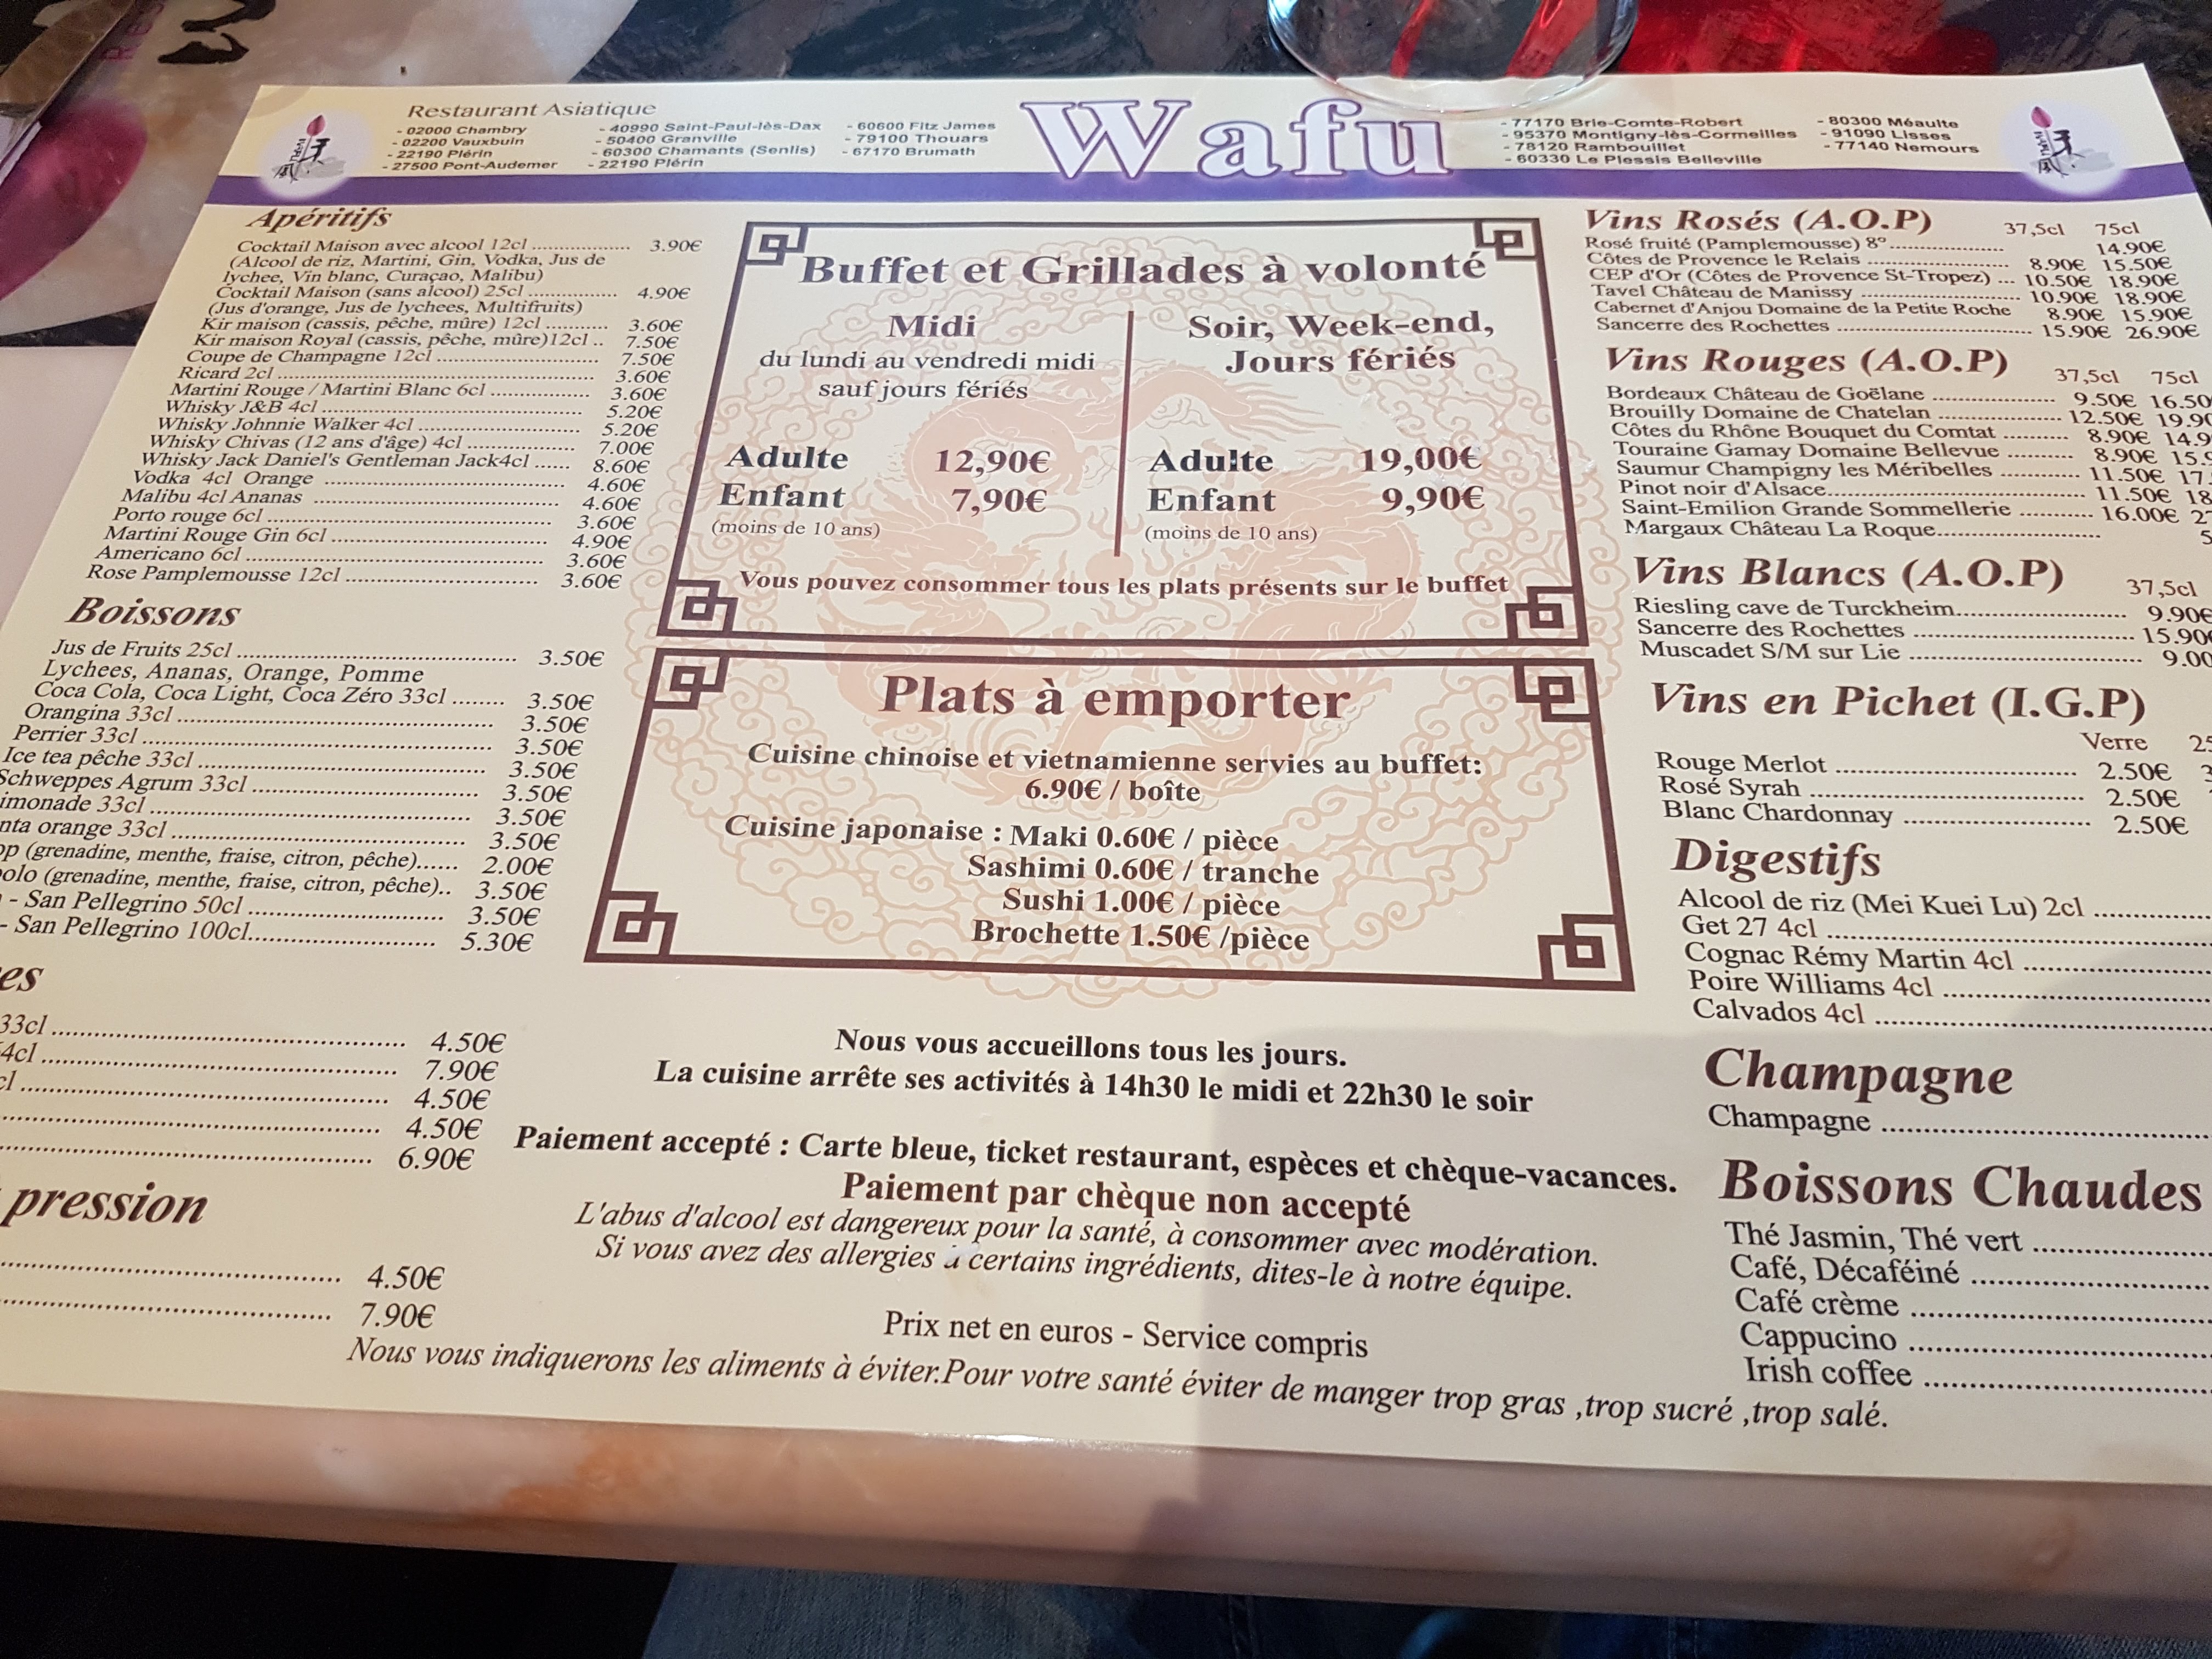 Restaurant Asiatique
- 02000 Chambry
- 02200 Vauxbuin
- 22190 Plérin
- 27500 Pont-Audemer
- 40990 Saint-Paul-lès-Dax
- 50400 Granville
- 60300 Chamants (Senlis)
- 22190 Plérin
- 60600 Fitz James
- 79100 Thouars
- 67170 Brumath
Wafu
- 77170 Brie-Comte-Robert
- 95370 Montigny-lès-Cormeilles
- 78120 Rambouillet
- 60330 Le Plessis Belleville
- 80300 Méaulte
- 91090 Lisses
- 77140 Nemours
Apéritifs
Cocktail Maison avec alcool 12cl ................. 3.90€
(Alcool de riz, Martini, Gin, Vodka, Jus de
lychee, Vin blanc, Curaçao, Malibu)
Cocktail Maison (sans alcool) 25cl ................ 4.90€
(Jus d'orange, Jus de lychees, Multifruits)
Kir maison (cassis, pêche, mûre) 12cl ........... 3.60€
Kir maison Royal (cassis, pêche, mûre)12cl .. 7.50€
Coupe de Champagne 12cl ............................ 7.50€
Ricard 2cl ................................................ 3.60€
Martini Rouge / Martini Blanc 6cl ................. 3.60€
Whisky J&B 4cl ........................................ 5.20€
Whisky Johnnie Walker 4cl .......................... 5.20€
Whisky Chivas (12 ans d'âge) 4cl ................. 7.00€
Whisky Jack Daniel's Gentleman Jack4cl ...... 8.60€
Vodka 4cl Orange ..................................... 4.60€
Malibu 4cl Ananas ..................................... 4.60€
Porto rouge 6cl .......................................... 3.60€
Martini Rouge Gin 6cl ................................ 4.90€
Americano 6cl ........................................... 3.60€
Rose Pamplemousse 12cl ............................ 3.60€
Boissons
Jus de Fruits 25cl ...................................... 3.50€
Lychees, Ananas, Orange, Pomme
Coca Cola, Coca Light, Coca Zéro 33cl ........ 3.50€
Orangina 33cl ........................................... 3.50€
Perrier 33cl ............................................... 3.50€
Ice tea pêche 33cl ...................................... 3.50€
Schweppes Agrum 33cl ............................... 3.50€
imonade 33cl ............................................ 3.50€
nta orange 33cl .......................................... 3.50€
op (grenadine, menthe, fraise, citron, pêche)...... 2.00€
olo (grenadine, menthe, fraise, citron, pêche).. 3.50€
- San Pellegrino 50cl ............................ 3.50€
- San Pellegrino 100cl........................... 5.30€
es
33cl .................................................... 4.50€
4cl ..................................................... 7.90€
cl ....................................................... 4.50€
........................................................ 4.50€
........................................................ 6.90€
pression
........................................................ 4.50€
........................................................ 7.90€
Buffet et Grillades à volonté
Midi
du lundi au vendredi midi
sauf jours fériés
Adulte 12,90€
Enfant 7,90€
(moins de 10 ans)
Soir, Week-end,
Jours fériés
Adulte 19,00€
Enfant 9,90€
(moins de 10 ans)
Vous pouvez consommer tous les plats présents sur le buffet
Plats à emporter
Cuisine chinoise et vietnamienne servies au buffet:
6.90€ / boîte
Cuisine japonaise : Maki 0.60€ / pièce
Sashimi 0.60€ / tranche
Sushi 1.00€ / pièce
Brochette 1.50€ /pièce
Nous vous accueillons tous les jours.
La cuisine arrête ses activités à 14h30 le midi et 22h30 le soir
Paiement accepté : Carte bleue, ticket restaurant, espèces et chèque-vacances.
Paiement par chèque non accepté
L'abus d'alcool est dangereux pour la santé, à consommer avec modération.
Si vous avez des allergies à certains ingrédients, dites-le à notre équipe.
Prix net en euros - Service compris
Nous vous indiquerons les aliments à éviter.Pour votre santé éviter de manger trop gras ,trop sucré ,trop salé.
Vins Rosés (A.O.P) 37,5cl 75cl
Rosé fruité (Pamplemousse) 8°.................... 14.90€
Côtes de Provence le Relais ......................... 8.90€ 15.50€
CEP d'Or (Côtes de Provence St-Tropez) ... 10.50€ 18.90€
Tavel Château de Manissy ........................... 10.90€ 18.90€
Cabernet d'Anjou Domaine de la Petite Roche 8.90€ 15.90€
Sancerre des Rochettes ................................ 15.90€ 26.90€
Vins Rouges (A.O.P) 37,5cl 75cl
Bordeaux Château de Goëlane .................... 9.50€ 16.50
Brouilly Domaine de Chatelan .................... 12.50€ 19.90
Côtes du Rhône Bouquet du Comtat .......... 8.90€ 14.9
Touraine Gamay Domaine Bellevue .......... 8.90€ 15.9
Saumur Champigny les Méribelles ............ 11.50€ 17
Pinot noir d'Alsace...................................... 11.50€ 18
Saint-Emilion Grande Sommellerie .......... 16.00€ 2
Margaux Château La Roque......................... 5
Vins Blancs (A.O.P) 37,5cl
Riesling cave de Turckheim......................... 9.90€
Sancerre des Rochettes ................................ 15.90€
Muscadet S/M sur Lie ................................. 9.00
Vins en Pichet (I.G.P)
Verre 25
Rouge Merlot ..................................... 2.50€ 3
Rosé Syrah ......................................... 2.50€
Blanc Chardonnay ............................. 2.50€
Digestifs
Alcool de riz (Mei Kuei Lu) 2cl ............
Get 27 4cl ................................................
Cognac Rémy Martin 4cl ....................
Poire Williams 4cl ................................
Calvados 4cl ..........................................
Champagne
Champagne ............................................
Boissons Chaudes
Thé Jasmin, Thé vert ......................
Café, Décaféiné ................................
Café crème .......................................
Cappucino ........................................
Irish coffee .......................................